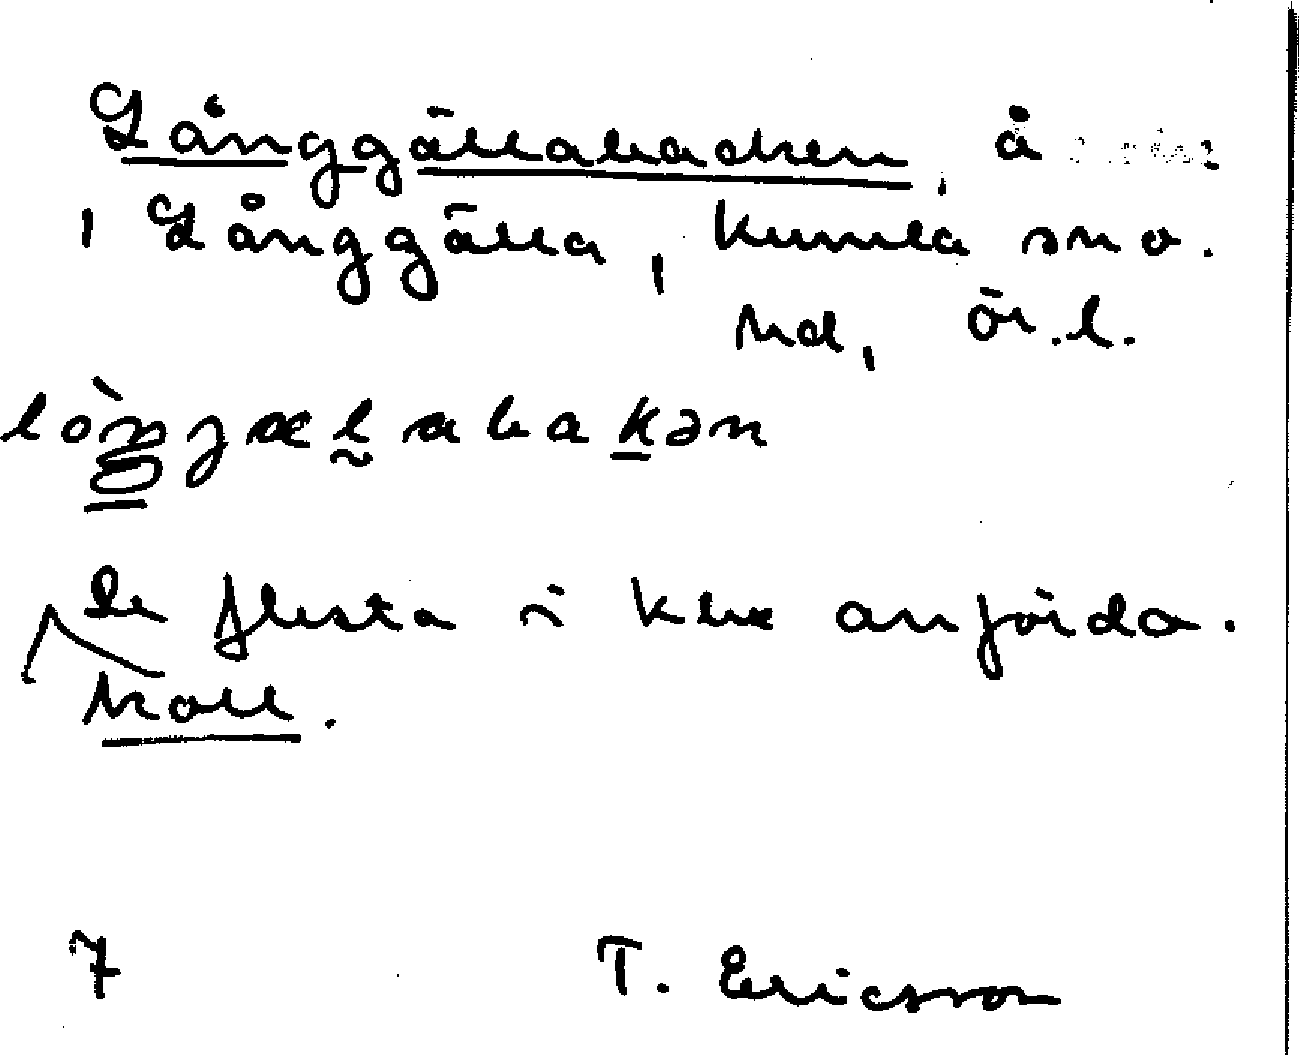 Långgällabacken, å
i Långgälla, Kumla sn o.
hd, Ör.l.
lòŋjælabakən
De flesta i anförda.
7 T. Ericsson